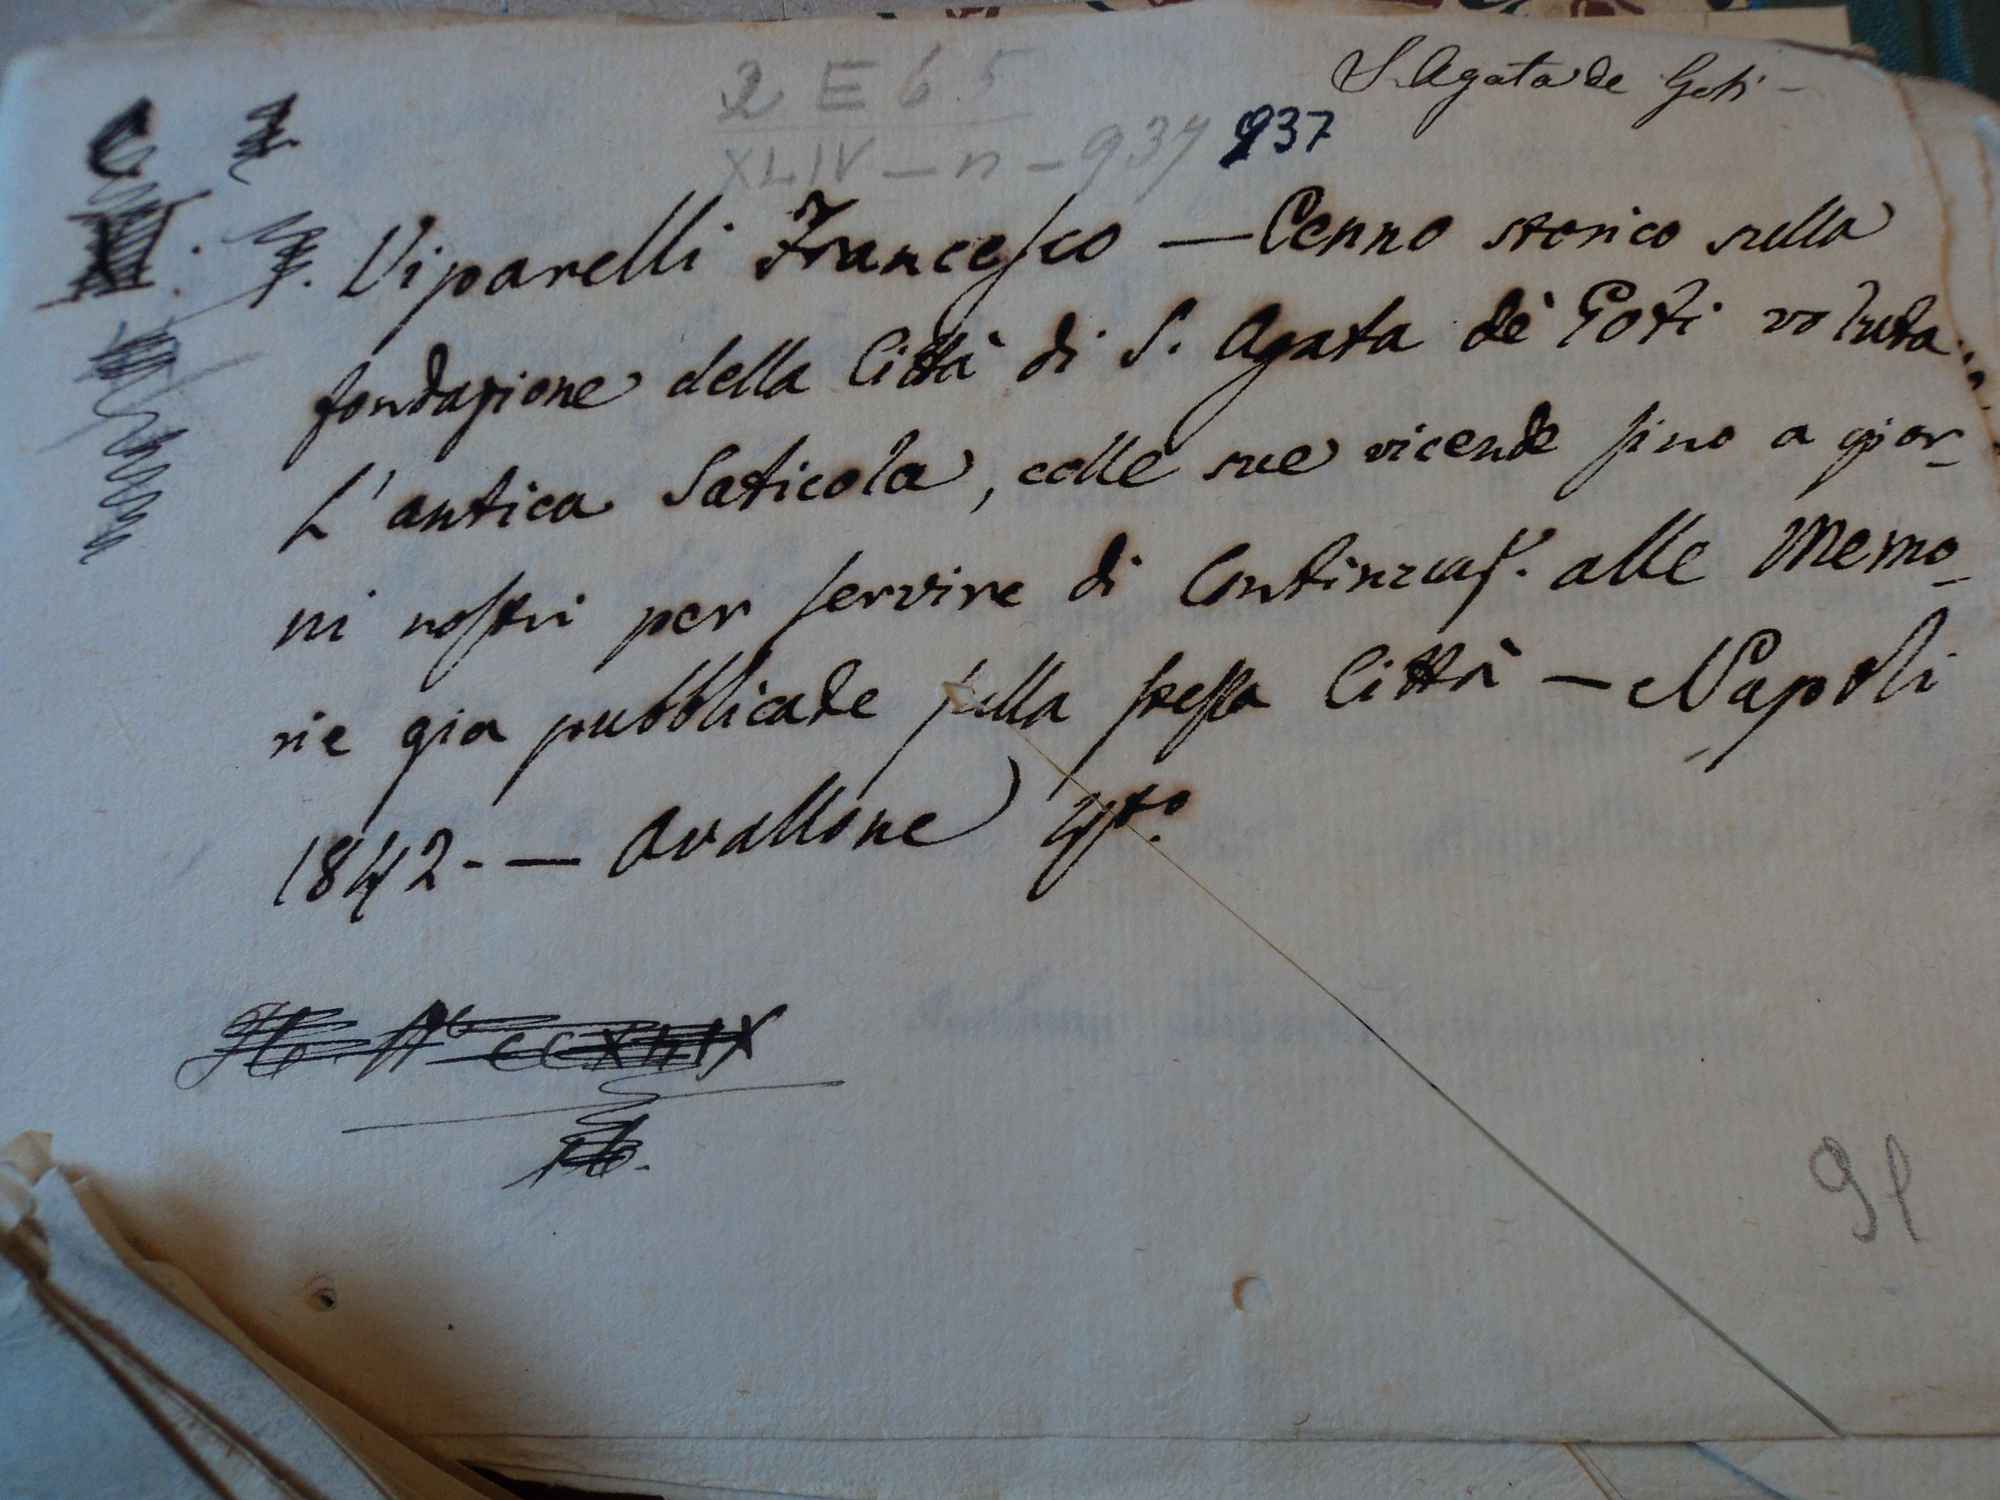 S. Agata de Goti -
2 E 65
XLIV - n - 937 937
Viparelli Francesco — Cenno storico sulla
fondazione della Città di S. Agata dè Goti voluta
L'antica Saticola, colle sue vicende sino a gior-
ni nostri per servire di Continuaz.e alle Memo-
rie gia pubblicate sulla stessa Città — Napoli
1842 - — Avallone
CCXLIX
91